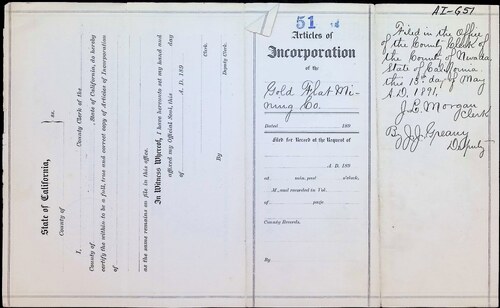 AI-651
51
Articles of
Incorporation
of the
Gold Flat Mi-
ning Co.
Dated 189
Filed for Record at the Request of
A. D. 189
at min. past o'clock,
M., and recorded in Vol.
of page
County Records.
By
Filed in the Office
of the County Clerk of
the County of Nevada
State of California
this 13th day of May
A.D. 1891.
J. L. Morgan
Clerk
By J. J. Greany
Deputy
State of California,
County of
ss.
I, County Clerk of the
County of , State of California, do hereby
certify the within to be a full, true and correct copy of Articles of Incorporation
of
as the same remains on file in this office.
In Witness Whereof, I have hereunto set my hand and
affixed my Official Seal, this day
of A. D. 189
Clerk.
By Deputy Clerk.